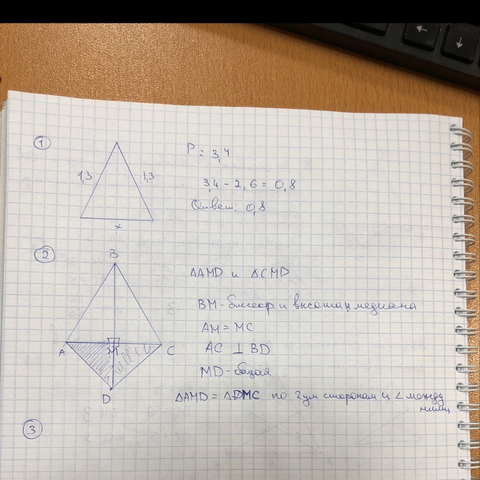 1
1,3 1,3
x
P = 3,4
3,4 - 2,6 = 0,8
Ответ: 0,8
2
B
A M C
D
ΔAMD и ΔCMD
BM - биссер. и высота и медиана
AM = MC
AC ⊥ BD
MD - общая
ΔAMD = ΔDMC по 2ум сторонам и ∠ между
ними
3